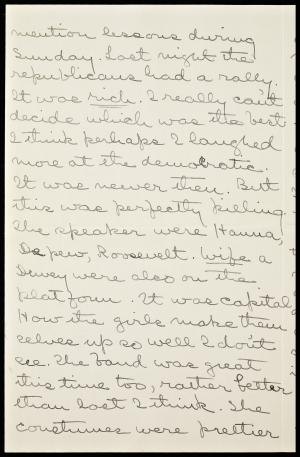 mention lessons during
Sunday. Last night the
republicans had a rally.
It was rich. I really can't
decide which was the best
I think perhaps I laughed
more at the democratic.
It was newer then. But
this was perfectly killing.
The speaker were Hanna,
Depew, Roosevelt. Wife a
Dewey were also on the
platform. It was capital
How the girls make them
selves up so well I don't
see. The band was great
this time too, rather better
than last I think. The
costumes were prettier